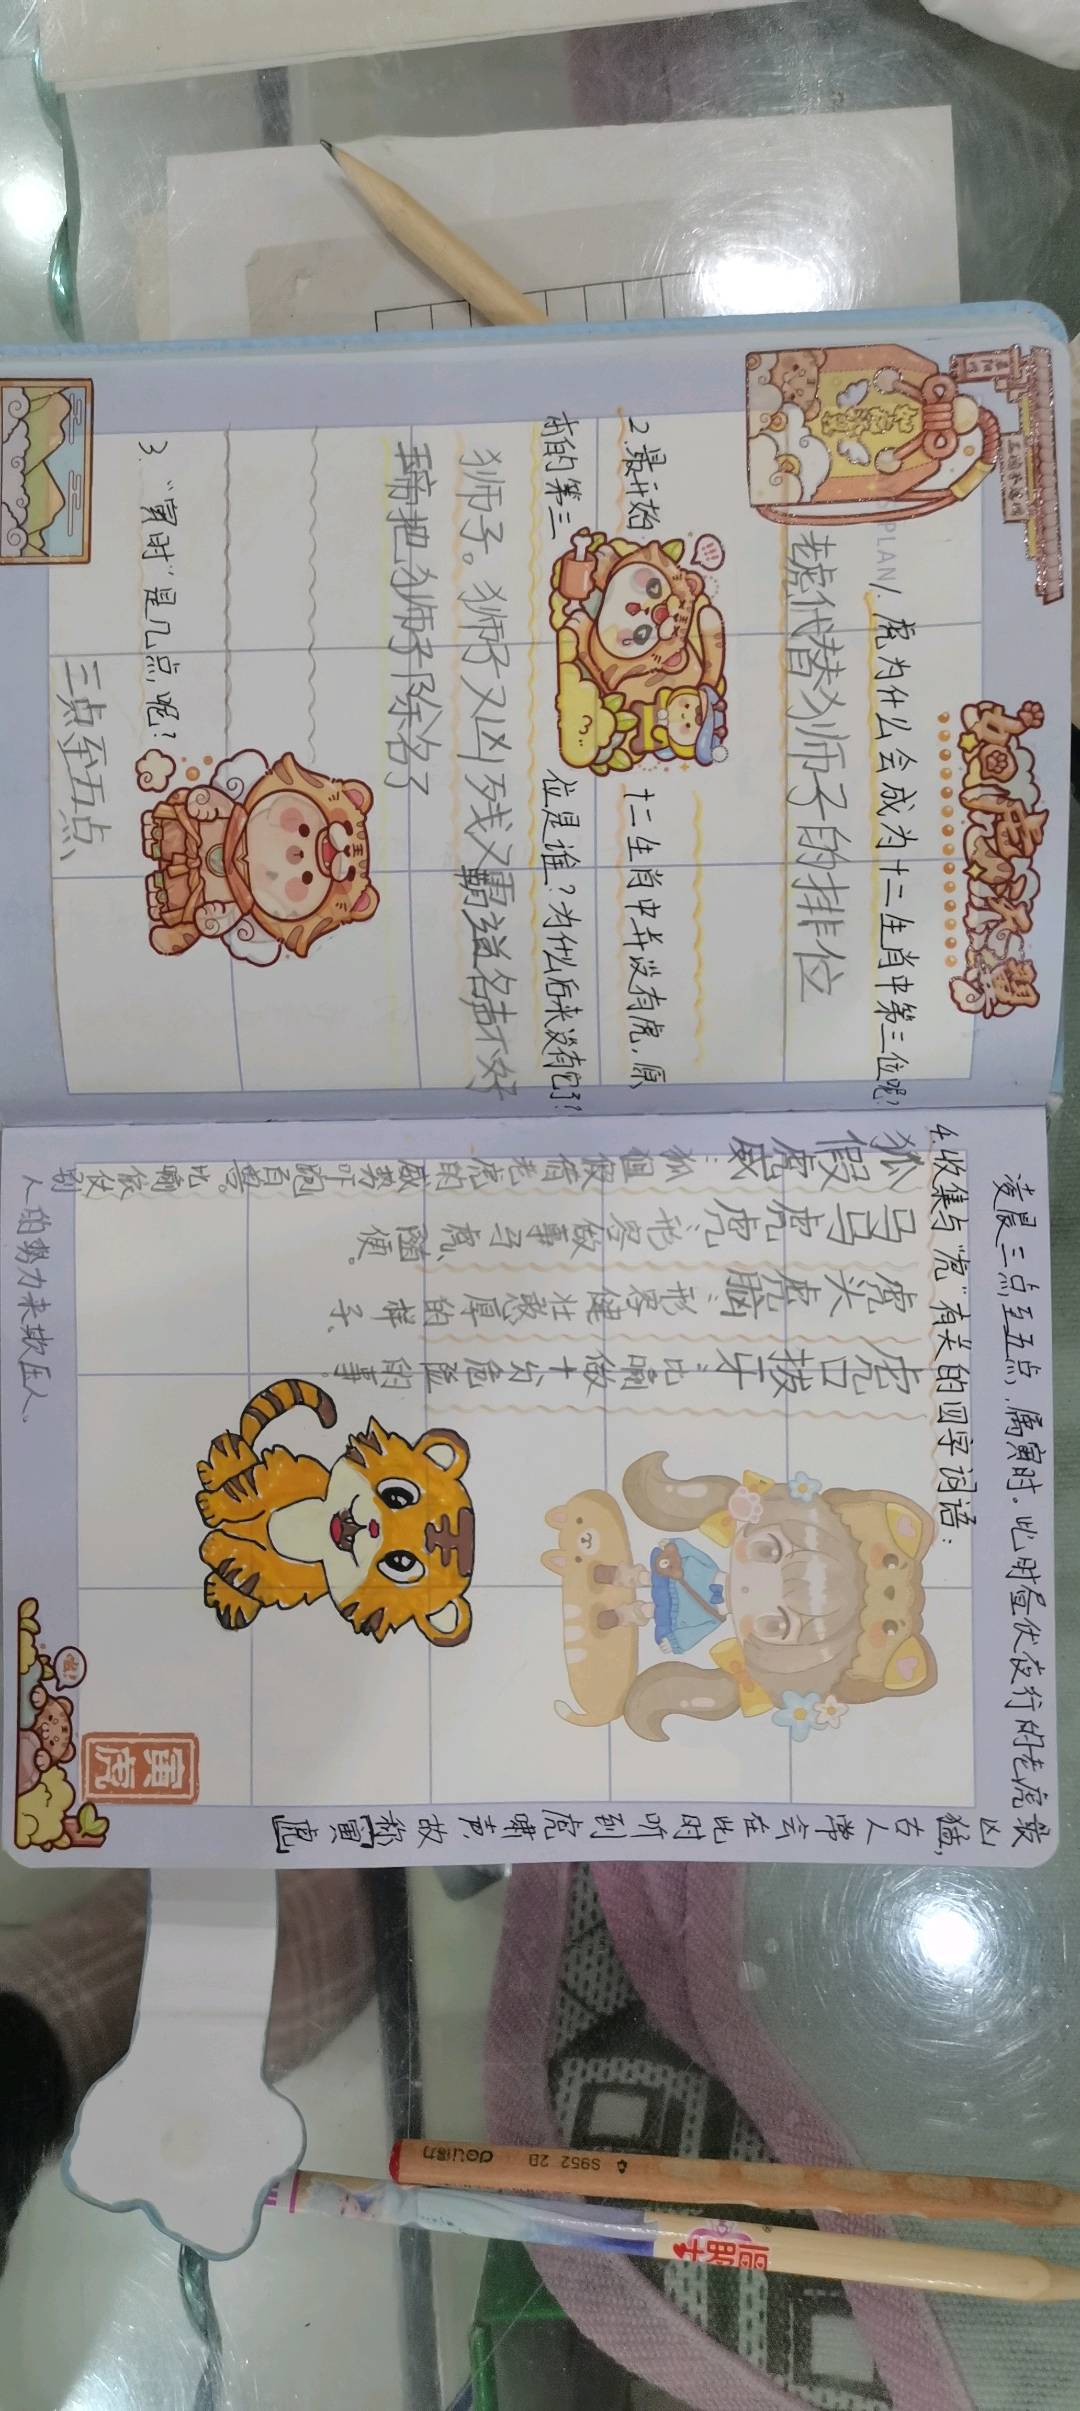 PLAN
1. 虎为什么会成为十二生肖中第三位呢?
老虎代替狮子的排位
2.最开始十二生肖中并没有虎,原
本的第三位是谁?为什么后来没有它了?
狮子。狮子又凶残又霸道名声不好
把狮子除名了
3. “寅时”是几点呢?
三点至五点
凌晨三点至五点,属寅时。此时昼伏夜行的老虎最
凶猛,古人常会在此时听到虎啸声.故称「寅虎」
4.收集与“虎”有关的四字词语:
狐假虎威:狐狸假借老虎的威势吓唬百兽。比喻依仗别
人的势力来欺压人.
马马虎虎:形容做事马虎、随便。
虎头虎脑:形容健壮憨厚的样子.
虎口拔牙:比喻做十分危险的事.
寅虎
deli得力 S952 2B